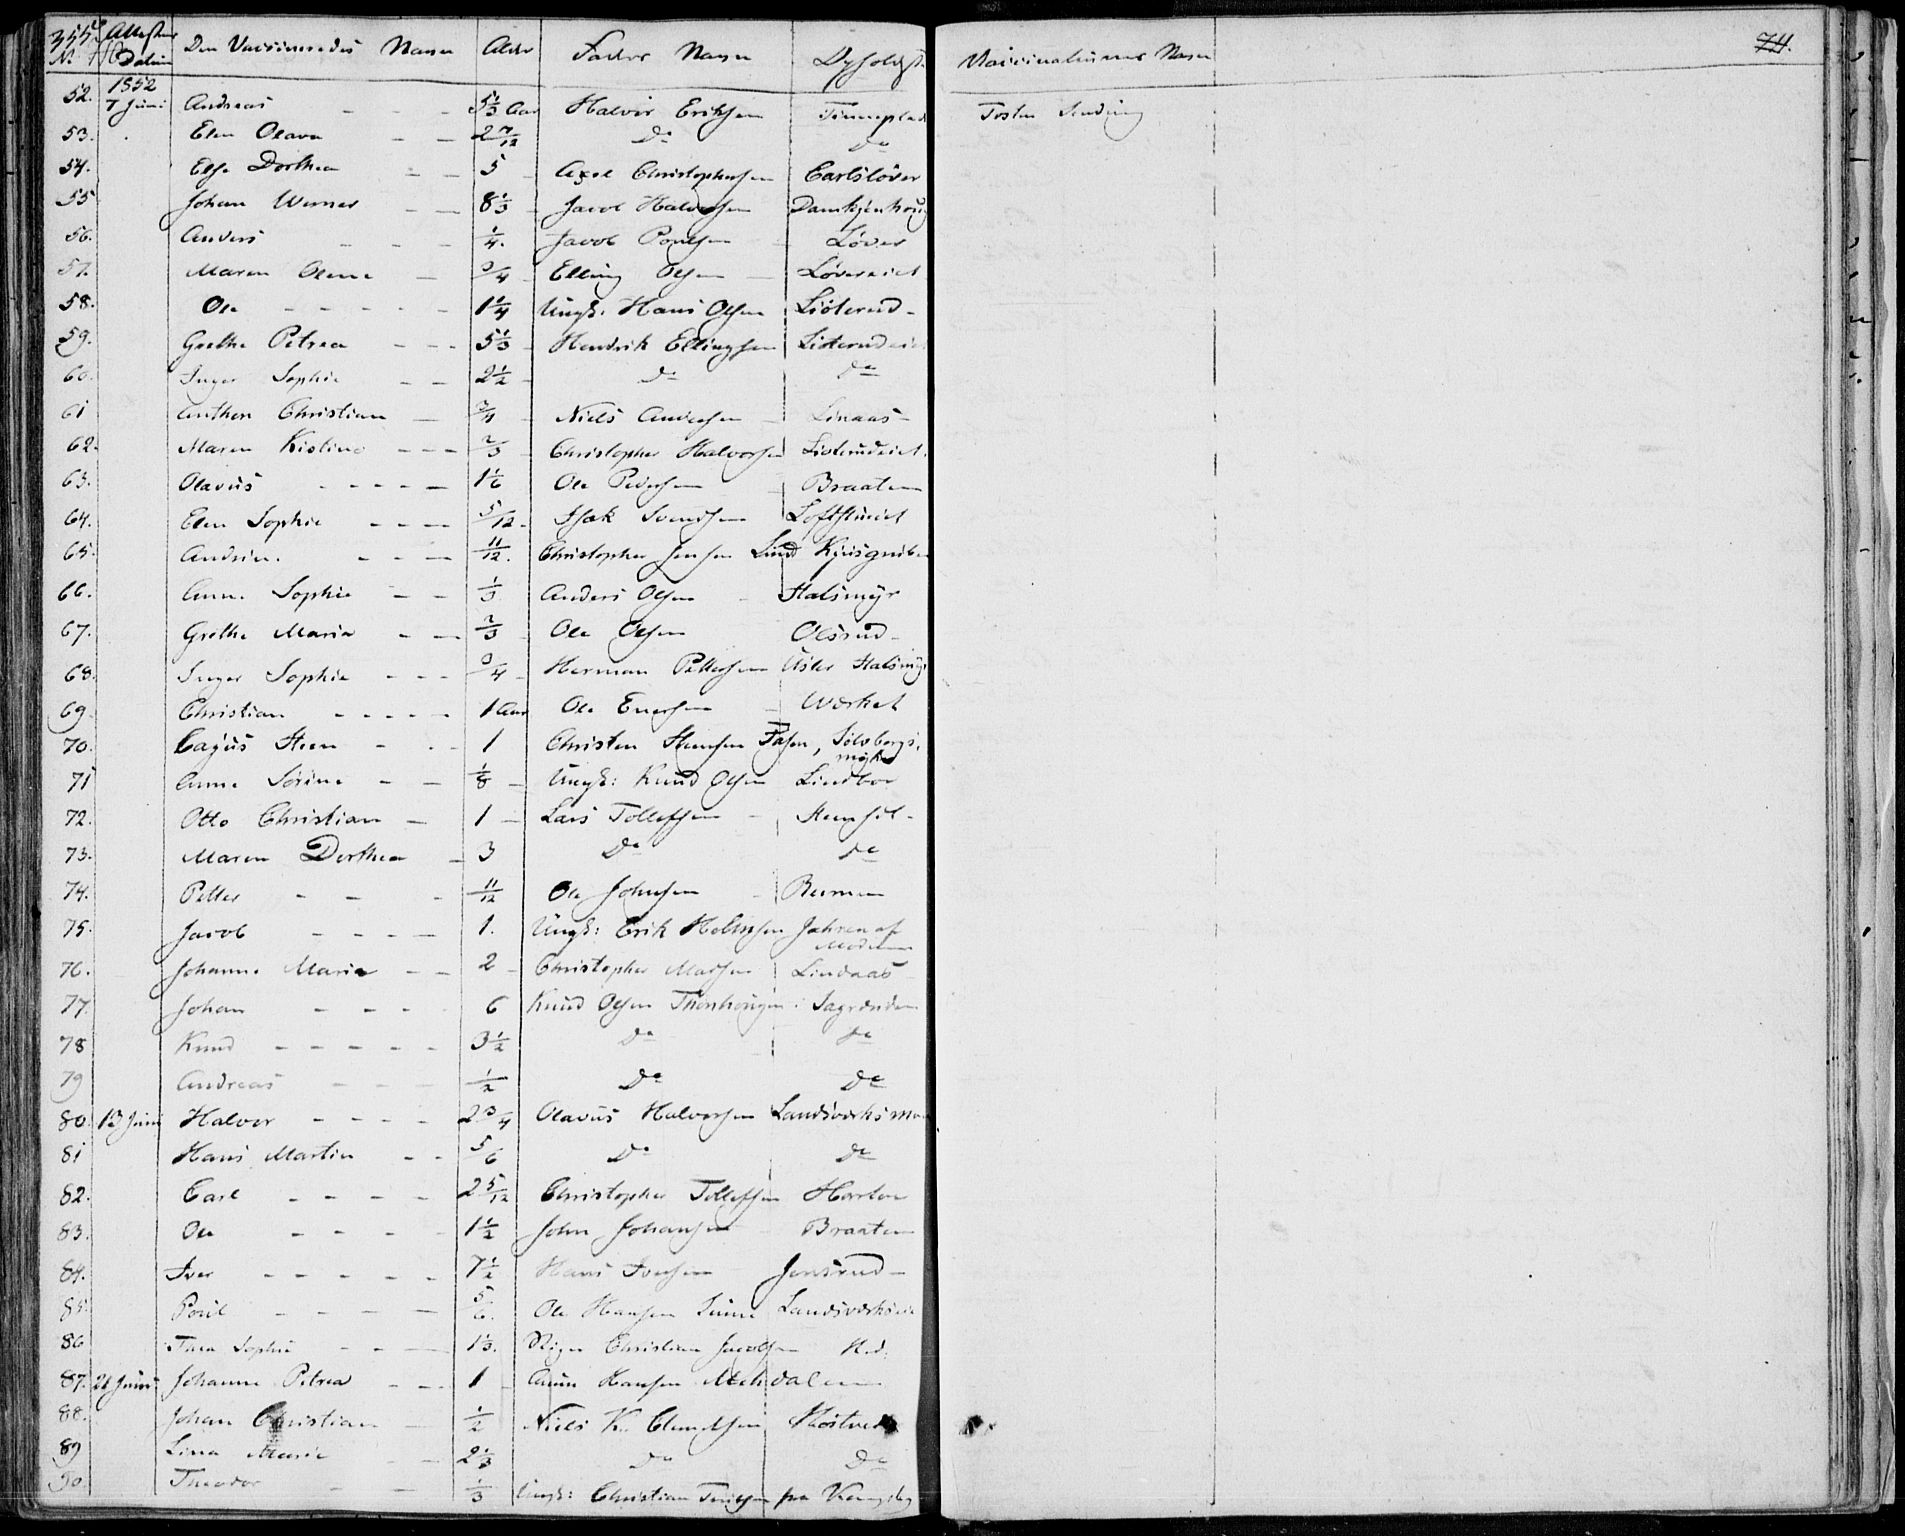 Attestens Den Vaccineredes Navn Alder Faders Navn Opholdst: Vaccinateurens Navn 74.
No Datum
1852
52. 7 Juni Andreas - - - 5 1/3 Aar Halvor Eriksen Tinneplads Tosten
53. Elen Olava - - 2 7/12 Do Do
54. Else Dorthea - - 5 Axel Christophersen Carlsløver
55 Johan Werner - - 8 1/3 Jacob Halvorsen
56. Anders - - - 1/4. Jacob Poulsen Løver
57. Maren Olene - 3/4 Elling Olsen Løvereiet
58. Ole - - - - - 1 1/4 Ungk: Hans Olsen Listerud -
59. Grethe Petrea - - - 5 1/3 Hendrik Ellingsen Listerudeiet
60. Inger Sophie - - 2 1/2 Do Do
61 Anthon Christian - 3/4 Niels Andersen Linaas -
62. Maren Kistine - - - 2/3 Christopher Halvorsen Listerudeiet.
63. Olavus - - - - - 1 1/6 Ole Pedersen Braaten
64. Elen Sophie - - - - 5/12 Isak Svendsen
65. Andrine. - - - - 11/12. Christopher Jensen Lund
66. Anne Sophie - - 1/3 Anders Olsen Halsmyr
67. Grethe Maria - - 2/3 Ole Olsen Olsrud -
68. Inger Sophie - - - 3/4 Herman Pettersen Øster Halsmyr
69. Christian - - - - - 1 Aar Ole Enersen Værket
70. Cajus Steen - - - 1 Christen Steensen Fasen, Sølvbergs.
71 Anne Sørine - - 1/8 Ungk: Knud Olsen Lindboe
72. Otto Christian - 1 - Lars Tollefsen
73. Maren Dorthea - 3 Do Do
74. Petter - - - 11/12 Ole Johnsen Reimen
75. Jacob - - - - 1. Ungk: Erik Jahren af Modum
76. Johanne Maria - - 2 Christopher Madsen Lindaas
77. Johan - - - 6 Knud Olsen Thorshougen Sagrenden
78 Knud - - - - - 3 1/2 Do Do
79 Andreas - - - 1/2 Do Do
80. 13 Juni Halvor - - - - 2 3/4 Olavus Halvorsen Landsværksmoen
81 Hans Martin - - 5/6 Do Do
82. Carl - - - - 2 5/12 Christopher Tollefsen
83. Ole - - - - 1 1/2 John Johansen Braaten
84. Iver - - - - - 7 1/2 Hans Iversen Jonsrud -
85. Poul - - - - 5/6. Ole Hansen Landsværkseie
86 Thea Sophie - - - 1 1/3. Christian Jacobsen
87. 21 Juni Johanne Petrea - - - 1 Hansen
88. Johan Christian - 1/2 Niels K. Skostved
89 Lina Marie - - 2 1/3 Do Do
90. Theodor - - 1/3 Ungk: Christian fra Kongsberg